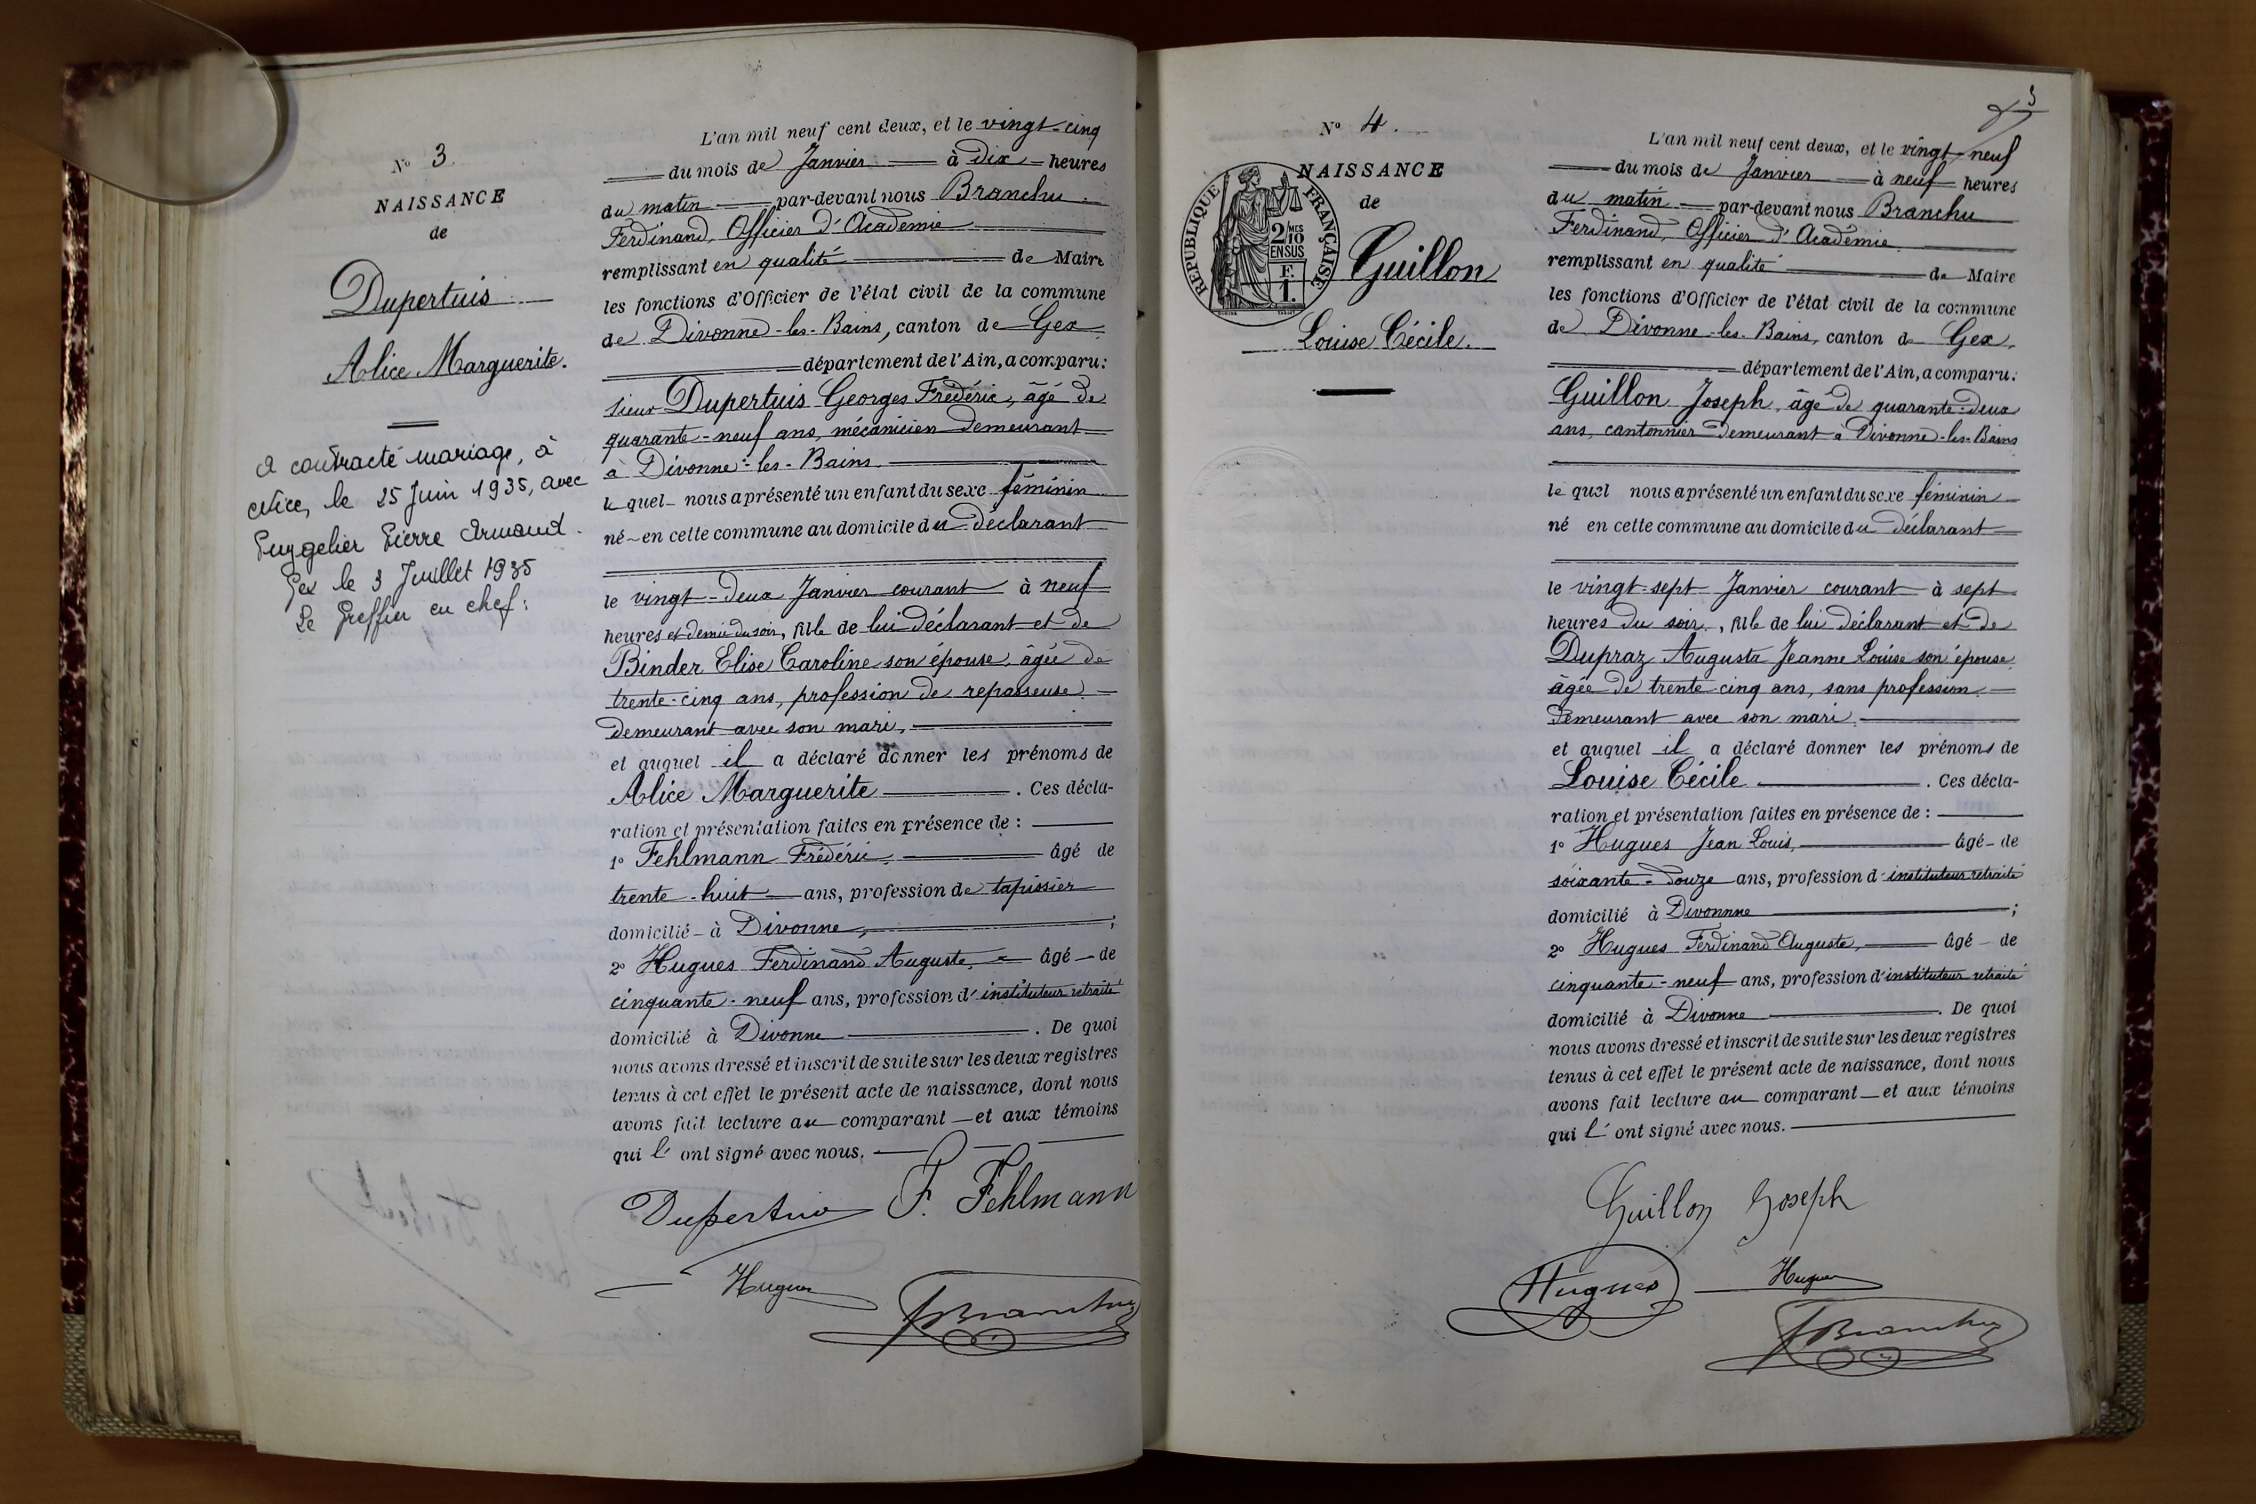 N° 3
NAISSANCE
de
Dupertuis
Alice Marguerite.
A contracté mariage, à
Nice, le 25 Juin 1935, avec
Puzgelier Pierre Armand.
Gex le 3 Juillet 1935
Le Greffier en chef:
L'an mil neuf cent deux, et le vingt-cinq
du mois de Janvier à dix heures
du matin par-devant nous Branchu
Ferdinand, Officier d'Académie
remplissant en qualité de Maire
les fonctions d'Officier de l'état civil de la commune
de Divonne-les-Bains, canton de Gex
département de l'Ain, a comparu:
sieur Dupertuis Georges Frédéric, âgé de
quarante-neuf ans, mécanicien demeurant
à Divonne-les-Bains.
le quel nous a présenté un enfant du sexe féminin
né en cette commune au domicile du déclarant
le vingt-deux Janvier courant à neuf
heures et demie du soir, fille de lui déclarant et de
Binder Elise Caroline son épouse, âgée de
trente-cinq ans, profession de repasseuse
demeurant avec son mari,
et auquel il a déclaré donner les prénoms de
Alice Marguerite. Ces décla-
ration et présentation faites en présence de:
1° Fehlmann Frédéric, âgé de
trente-huit ans, profession de tapissier
domicilié à Divonne, ;
2° Hugues Ferdinand Auguste, âgé de
cinquante-neuf ans, profession d'instituteur retraité
domicilié à Divonne. De quoi
nous avons dressé et inscrit de suite sur les deux registres
tenus à cet effet le présent acte de naissance, dont nous
avons fait lecture au comparant et aux témoins
qui l'ont signé avec nous.
Dupertuis F. Fehlmann
Hugues FBranchu
3
N° 4.
NAISSANCE
de
REPUBLIQUE FRANÇAISE
2/10 MES
EN SUS
F.
1.
Guillon
Louise Cécile.
L'an mil neuf cent deux, et le vingt-neuf
du mois de Janvier à neuf heures
du matin par-devant nous Branchu
Ferdinand, Officier d'Académie
remplissant en qualité de Maire
les fonctions d'Officier de l'état civil de la commune
de Divonne-les-Bains, canton de Gex,
département de l'Ain, a comparu:
Guillon Joseph, âgé de quarante-deux
ans, cantonnier demeurant à Divonne-les-Bains
le quel nous a présenté un enfant du sexe féminin
né en cette commune au domicile du déclarant
le vingt-sept Janvier courant à sept
heures du soir, fille de lui déclarant et de
Dupraz Augusta Jeanne Louise son épouse
âgée de trente cinq ans, sans profession
demeurant avec son mari,
et auquel il a déclaré donner les prénoms de
Louise Cécile. Ces décla-
ration et présentation faites en présence de:
1° Hugues Jean Louis, âgé de
soixante-douze ans, profession d'instituteur retraité
domicilié à Divonnne ;
2° Hugues Ferdinand Auguste, âgé de
cinquante-neuf ans, profession d'instituteur retraité
domicilié à Divonne. De quoi
nous avons dressé et inscrit de suite sur les deux registres
tenus à cet effet le présent acte de naissance, dont nous
avons fait lecture au comparant et aux témoins
qui l'ont signé avec nous.
Guillon Joseph
Hugues Hugues
FBranchu